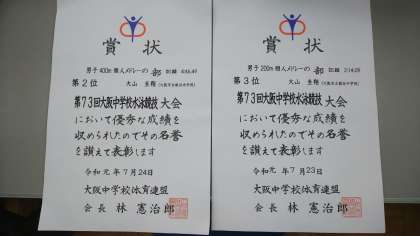 賞状
男子400m個人メドレーの部 記録 4:46.49
第2位
第73回大阪中学校水泳競技大会
において優秀な成績を
収められたのでその名誉
を讃えて表彰します
令和元年7月24日
大阪中学校体育連盟
会長 林 憲治郎
賞状
男子200m個人メドレーの部 記録
第3位
第73回大阪中学校水泳競技大会
において優秀な成績を
収められたのでその名誉
を讃えて表彰します
令和元年7月23日
大阪中学校体育連盟
会長 林 憲治郎